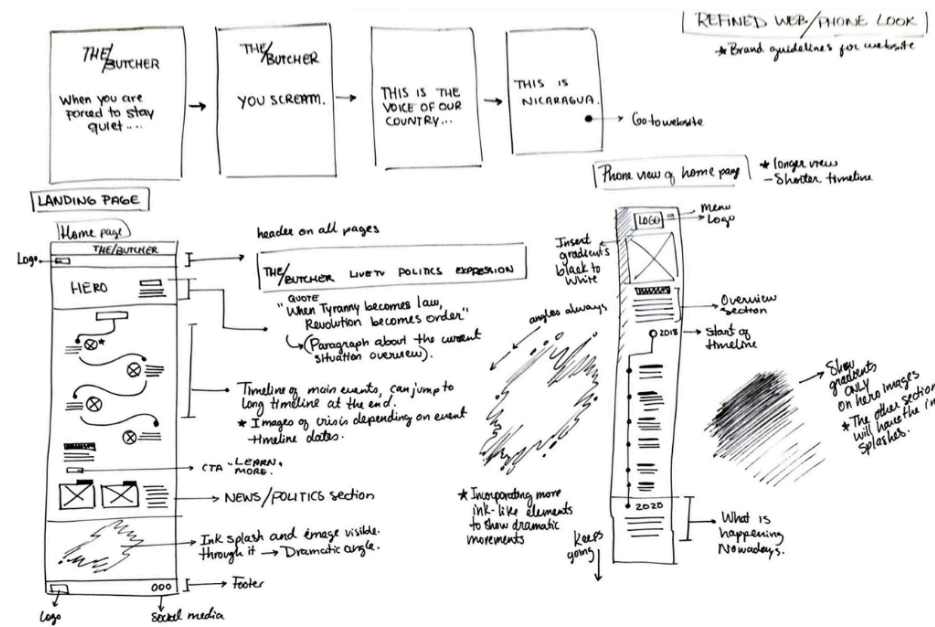 REFINED WEB/PHONE LOOK
* Brand guidelines for website
THE/
BUTCHER
When you are
forced to stay
quiet....
THE/
BUTCHER
YOU SCREAM.
THIS IS THE
VOICE OF OUR
COUNTRY...
THIS IS
NICARAGUA.
Go to website
LANDING PAGE
Home page
THE/BUTCHER
Logo
HERO
header on all pages
THE/BUTCHER LIVE TV POLITICS EXPRESSION
QUOTE
"When Tyranny becomes law,
Revolution becomes order"
(Paragraph about the current
situation overview).
Timeline of main events, can jump to
long timeline at the end.
* Images of crisis depending on event
timeline dates.
CTA - LEARN
MORE.
NEWS/POLITICS section
Ink splash and image visible
through it → Dramatic angle.
Footer
Logo
Social media
Phone view of home page
* longer view
- Shorter timeline
LOGO
Menu
Logo
Insert
gradients
black to
White
Overview
section
2018
Start of
timeline
angles always
* Incorporating more
ink-like elements
to show dramatic
movements
Show
gradients
ONLY
on hero images
* The other section
will have the in
splashes.
2020
What is
happening
Nowadays.
Keeps
going